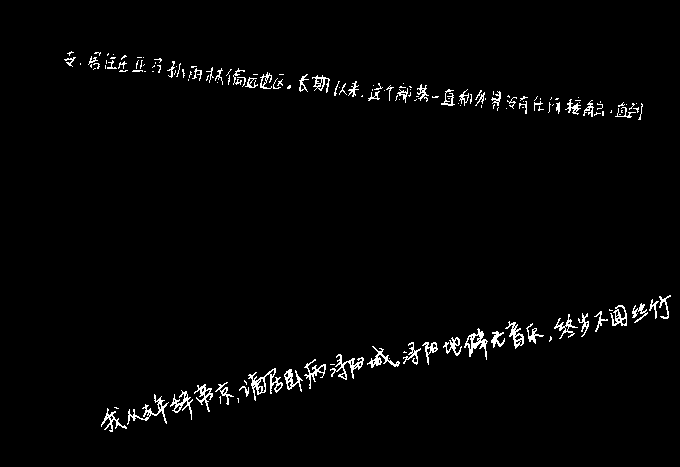 支,居住在亚马孙雨林偏远地区。长期以来,这个部落一直和外界没有任何接触,直到
我从去年辞帝京,谪居卧病浔阳城。浔阳地僻无音乐,终岁不闻丝竹